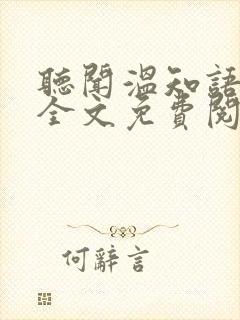 聽聞溫知語
全文免費閱
何辭言